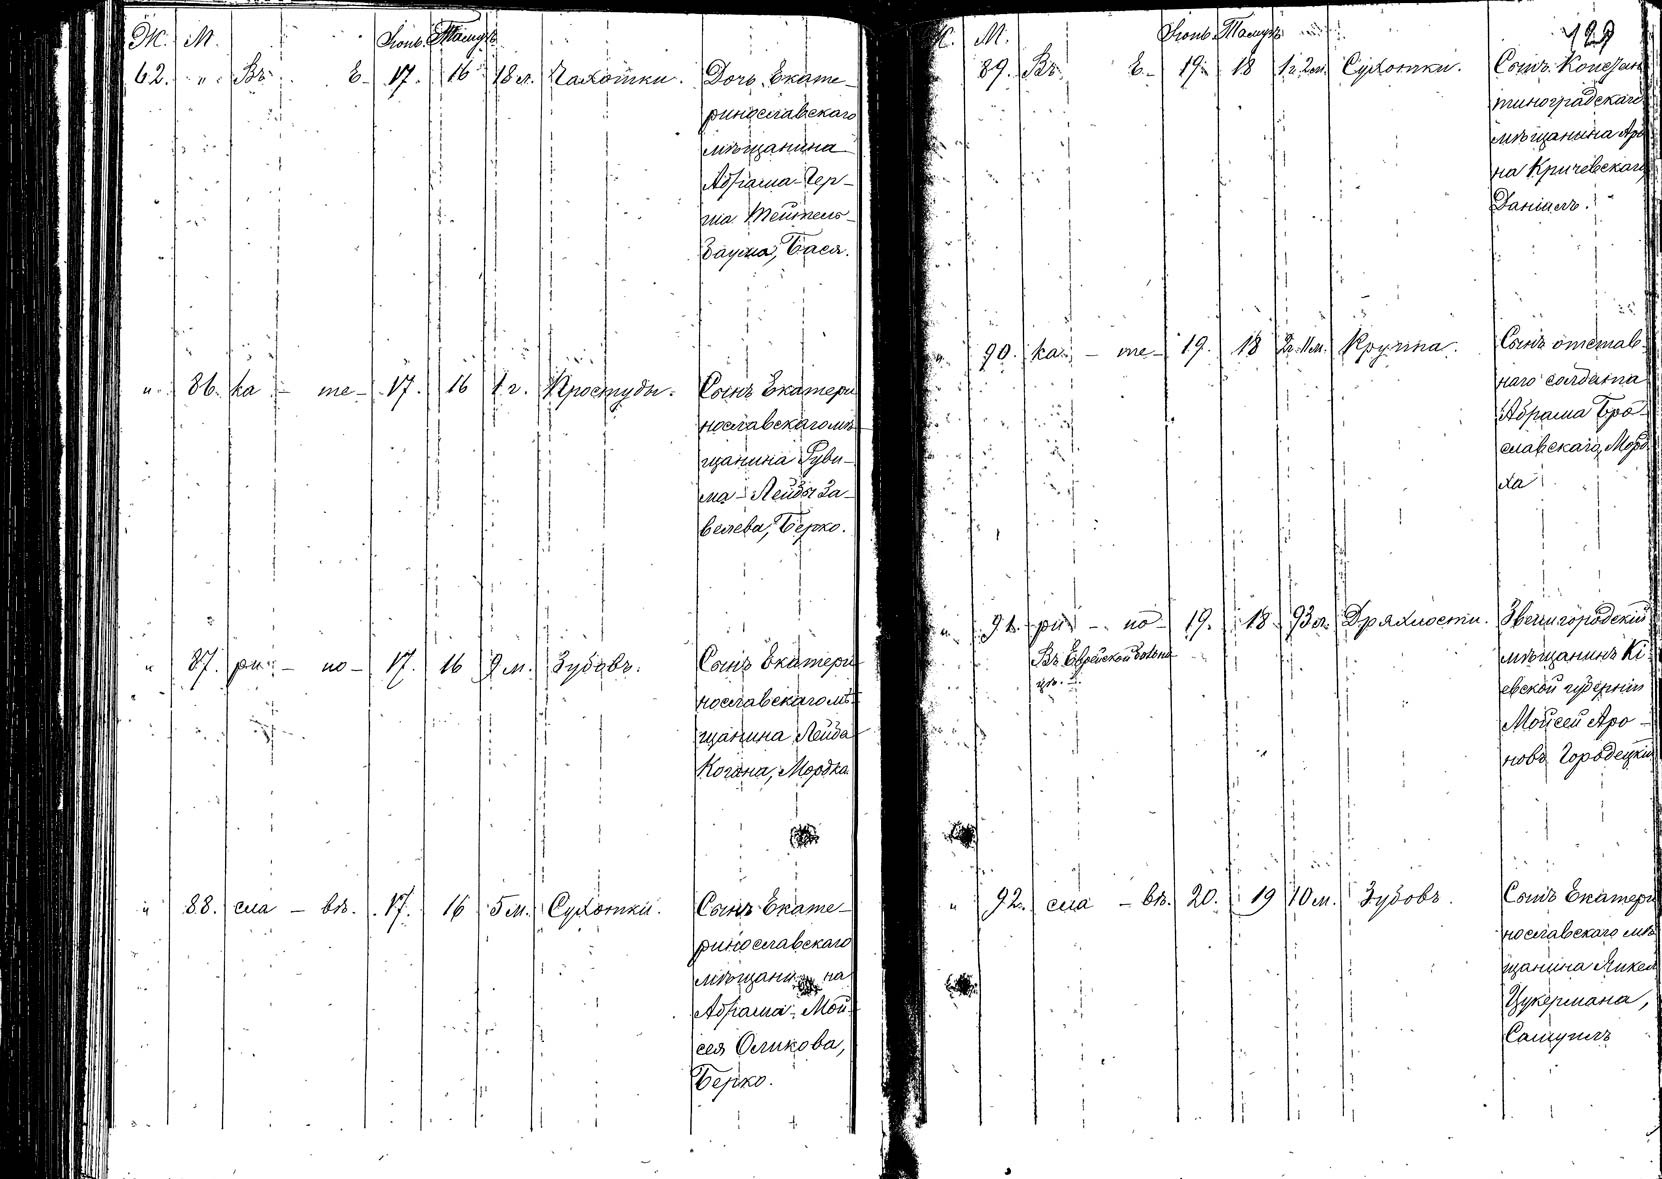 Ж. М. Іюнь. Тамузъ
62. " Въ Е- 17. 16 18 л. Чахотки. Дочь Екате-
ринославскаго
мѣщанина
Абрама-Гер-
ша Тейтель-
баума, Бася.
" 86. ка - те- 17. 16 1 г. Простуды. Сынъ Екатери
нославскаго мѣ-
щанина Руви-
ма-Лейбы За-
велева, Берко.
" 87. ри - но- 17. 16 9 м. Зубовъ. Сынъ Екатери
нославскаго мѣ-
щанина Лейба
Когана, Мордка
" 88. сла - вѣ. 17. 16 5 м. Сухотки. Сынъ Екате-
ринославскаго
мѣщани на
Абрама-Мой-
сея Оликова,
Берко.
129
Ж. М. Іюнь. Тамузъ
89. Въ Е- 19. 18 1 г. 2 м. Сухотки. Сынъ Констан
тиноградскаго
мѣщанина Аро
на Кричевскаго,
Даніилъ.
" 90. ка - те- 19. 18 2 г. 11 м. Крупа. Сынъ отстав-
наго солдата
Абрама Бро-
славскаго, Морд
ха
" 91. ри - но- 19. 18 93 л. Дряхлости. Звенигородскій
Въ Еврейской больни
цѣ.
мѣщанинъ Кі-
евской губерніи
Мойсей Аро-
новъ Городецкій
" 92. сла - вѣ. 20. 19 10 м. Зубовъ. Сынъ Екатери
нославскаго мѣ
щанина Янкеля
Цукермана,
Самуилъ